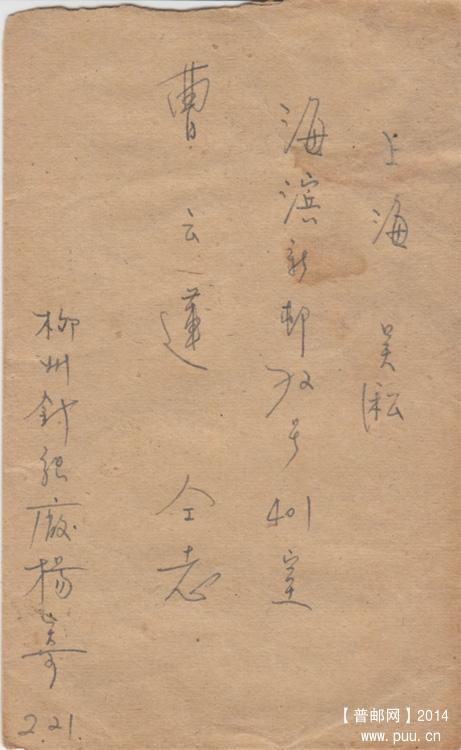 上海 吴淞
海滨新邨72号401室
曹云蓮 仝志
柳州針织廠楊寄
2.21.
【普邮网】2014
www.puu.cn